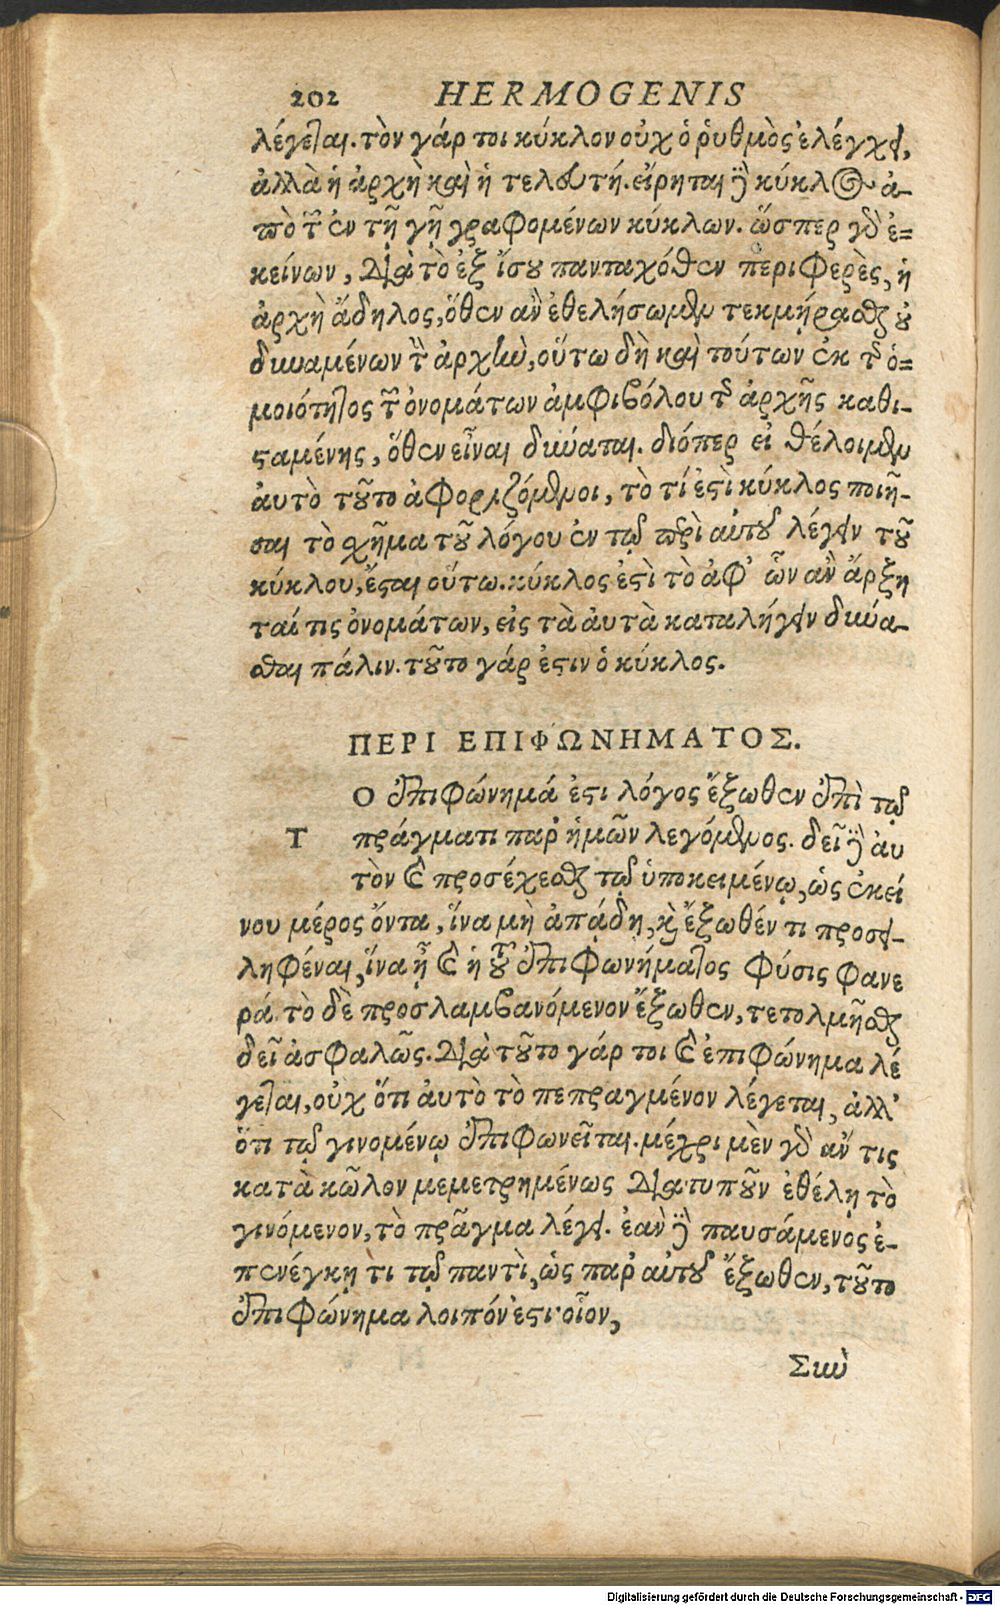 202 HERMOGENIS
λέγεται. τὸν γάρ τοι κύκλον οὐχ ὁ ῥυθμὸς ἐλέγχει,
ἀλλὰ ἡ ἀρχὴ καὶ ἡ τελευτή. εἴρηται δὲ κύκλος ἀ-
πὸ τῶν ἐν τῇ γῇ γραφομένων κύκλων. ὥσπερ γὰρ ἐ-
κείνων, διὰ τὸ ἐξ ἴσου πανταχόθεν περιφερὲς, ἡ
ἀρχὴ ἄδηλος, ὅθεν ἂν ἐθελήσωμεν τεκμήρασθαι οὐ
δυναμένων τὴν ἀρχὴν, οὕτω δὴ καὶ τούτων ἐκ τῆς ὁ-
μοιότητος τῶν ὀνομάτων ἀμφιβόλου τῆς ἀρχῆς καθι-
σταμένης, ὅθεν εἶναι δύναται. διόπερ εἰ θέλοιμεν
αὐτὸ τοῦτο ἀφοριζόμενοι, τὸ τί ἐστὶ κύκλος ποιῆ-
σαι τὸ σχῆμα τοῦ λόγου ἐν τῷ περὶ αὐτοῦ λέγειν τοῦ
κύκλου, ἔσται οὕτω. κύκλος ἐστὶ τὸ ἀφ' ὧν ἂν ἄρξη
ταί τις ὀνομάτων, εἰς τὰ αὐτὰ καταλήγειν δύνα-
σθαι πάλιν. τοῦτο γάρ ἐστιν ὁ κύκλος.
ΠΕΡΙ ΕΠΙΦΩΝΗΜΑΤΟΣ.
Ο ἐπιφώνημά ἐστι λόγος ἔξωθεν ἐπὶ τῷ
Τ πράγματι παρ' ἡμῶν λεγόμενος. δεῖ δὲ αὐ
τὸν καὶ προσέχεσθαι τῷ ὑποκειμένῳ, ὡς ἐκεί
νου μέρος ὄντα, ἵνα μὴ ἀπᾴδῃ, καὶ ἔξωθέν τι προσει-
ληφέναι, ἵνα ᾖ καὶ ἡ τοῦ ἐπιφωνήματος φύσις φανε
ρά. τὸ δὲ προσλαμβανόμενον ἔξωθεν, τετολμῆσθαι
δεῖ ἀσφαλῶς. διὰ τοῦτο γάρ τοι καὶ ἐπιφώνημα λέ
γεται, οὐχ ὅτι αὐτὸ τὸ πεπραγμένον λέγεται, ἀλλ'
ὅτι τῷ γινομένῳ ἐπιφωνεῖται. μέχρι μὲν γὰρ ἄν τις
κατὰ κῶλον μεμετρημένως διατυποῦν ἐθέλῃ τὸ
γινόμενον, τὸ πρᾶγμα λέγει. ἐὰν δὲ παυσάμενος ἐ-
πενέγκῃ τι τῷ παντὶ, ὡς παρ' αὐτοῦ ἔξωθεν, τοῦτο
ἐπιφώνημα λοιπόν ἐστι· οἷον,
Σὺν
Digitalisierung gefördert durch die Deutsche Forschungsgemeinschaft - DFG